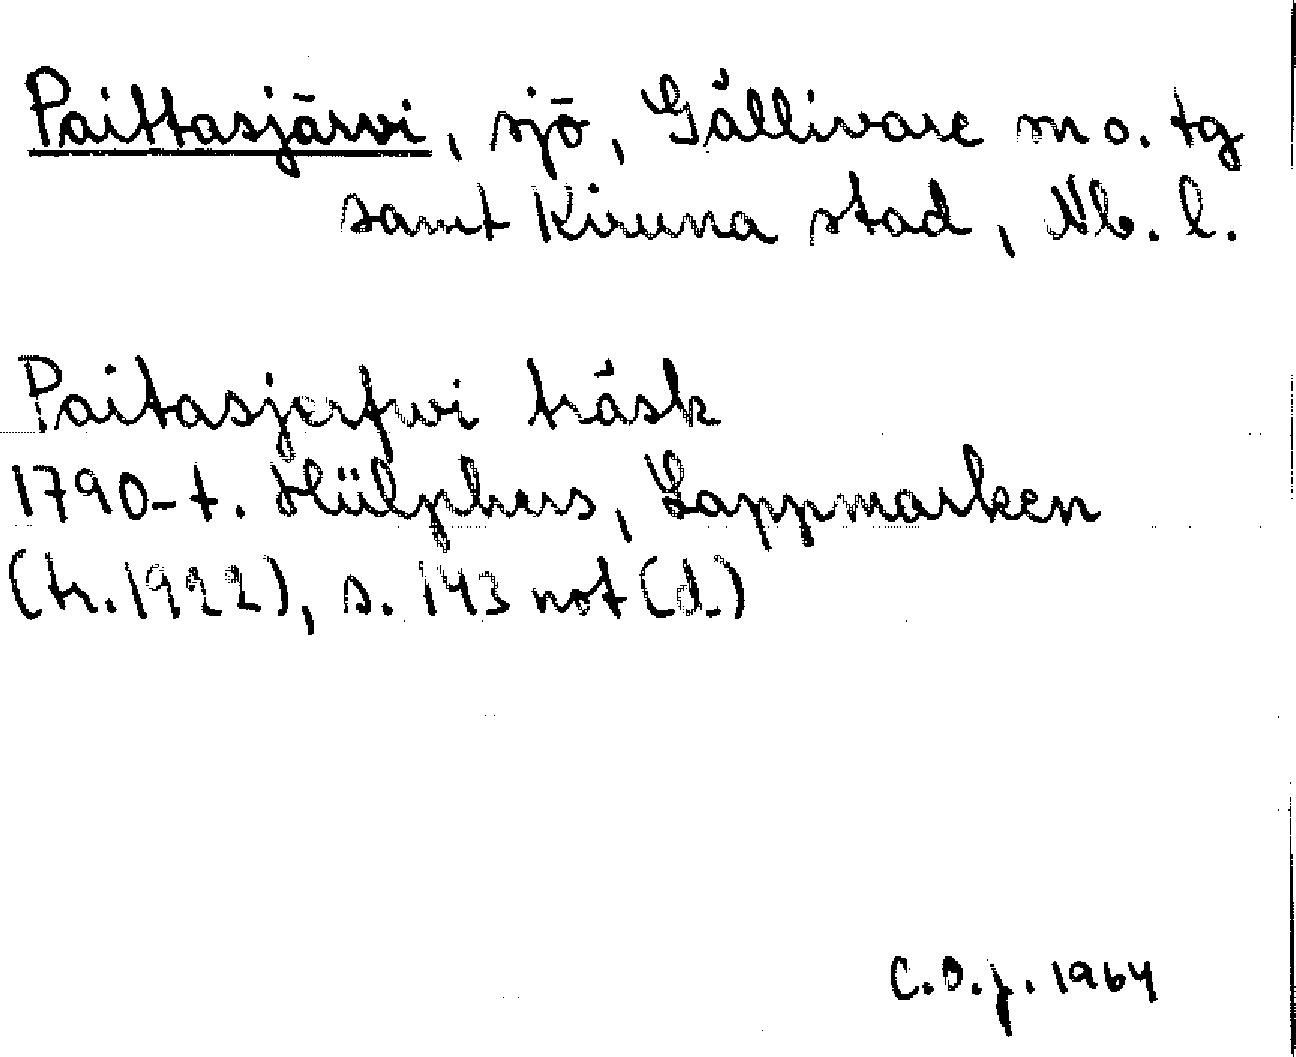 Paittasjärvi, sjö, Gällivare sn o. tg
samt Kiruna stad, Nb. l.
Paitasjerfwi träsk
1790-t. Hülphers, Lappmarken
(tr. 1922), s. 143 not (d.)
C.O.J. 1964